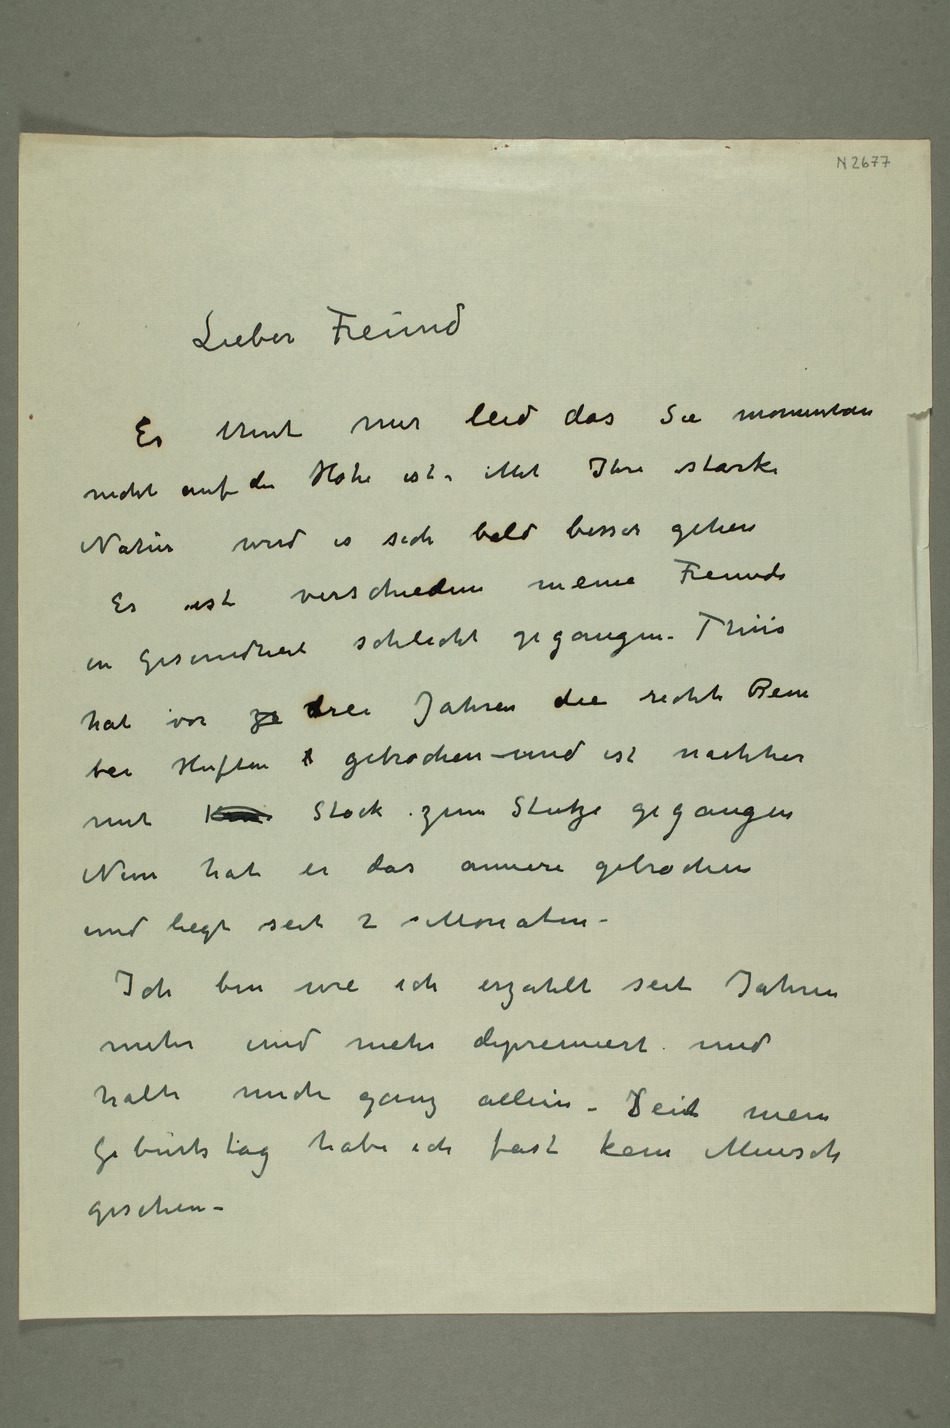 N 2677
Lieber Freund
Es thut mir leid das Sie momentan
nicht auf der Höhe ist. Mit Ihre starke
Natur wird es sich bald besser gehen
Es ist verschiedene meine Freunde
in Gesundheit schlecht gegangen. Thiis
hat vor ze drei Jahren die recht Bein
bei Huften gebrochen – und ist nachher
mit Stock zum Stutze gegangen
Nun hat er das annere gebrochen
und liegt seit 2 Monaten –
Ich bin wie ich erzahlt seit Jahren
mehr und mehr depremiert und
halte mich ganz allein – Seit mein
Geburtstag habe ich fast kein Mensch
gesehen –